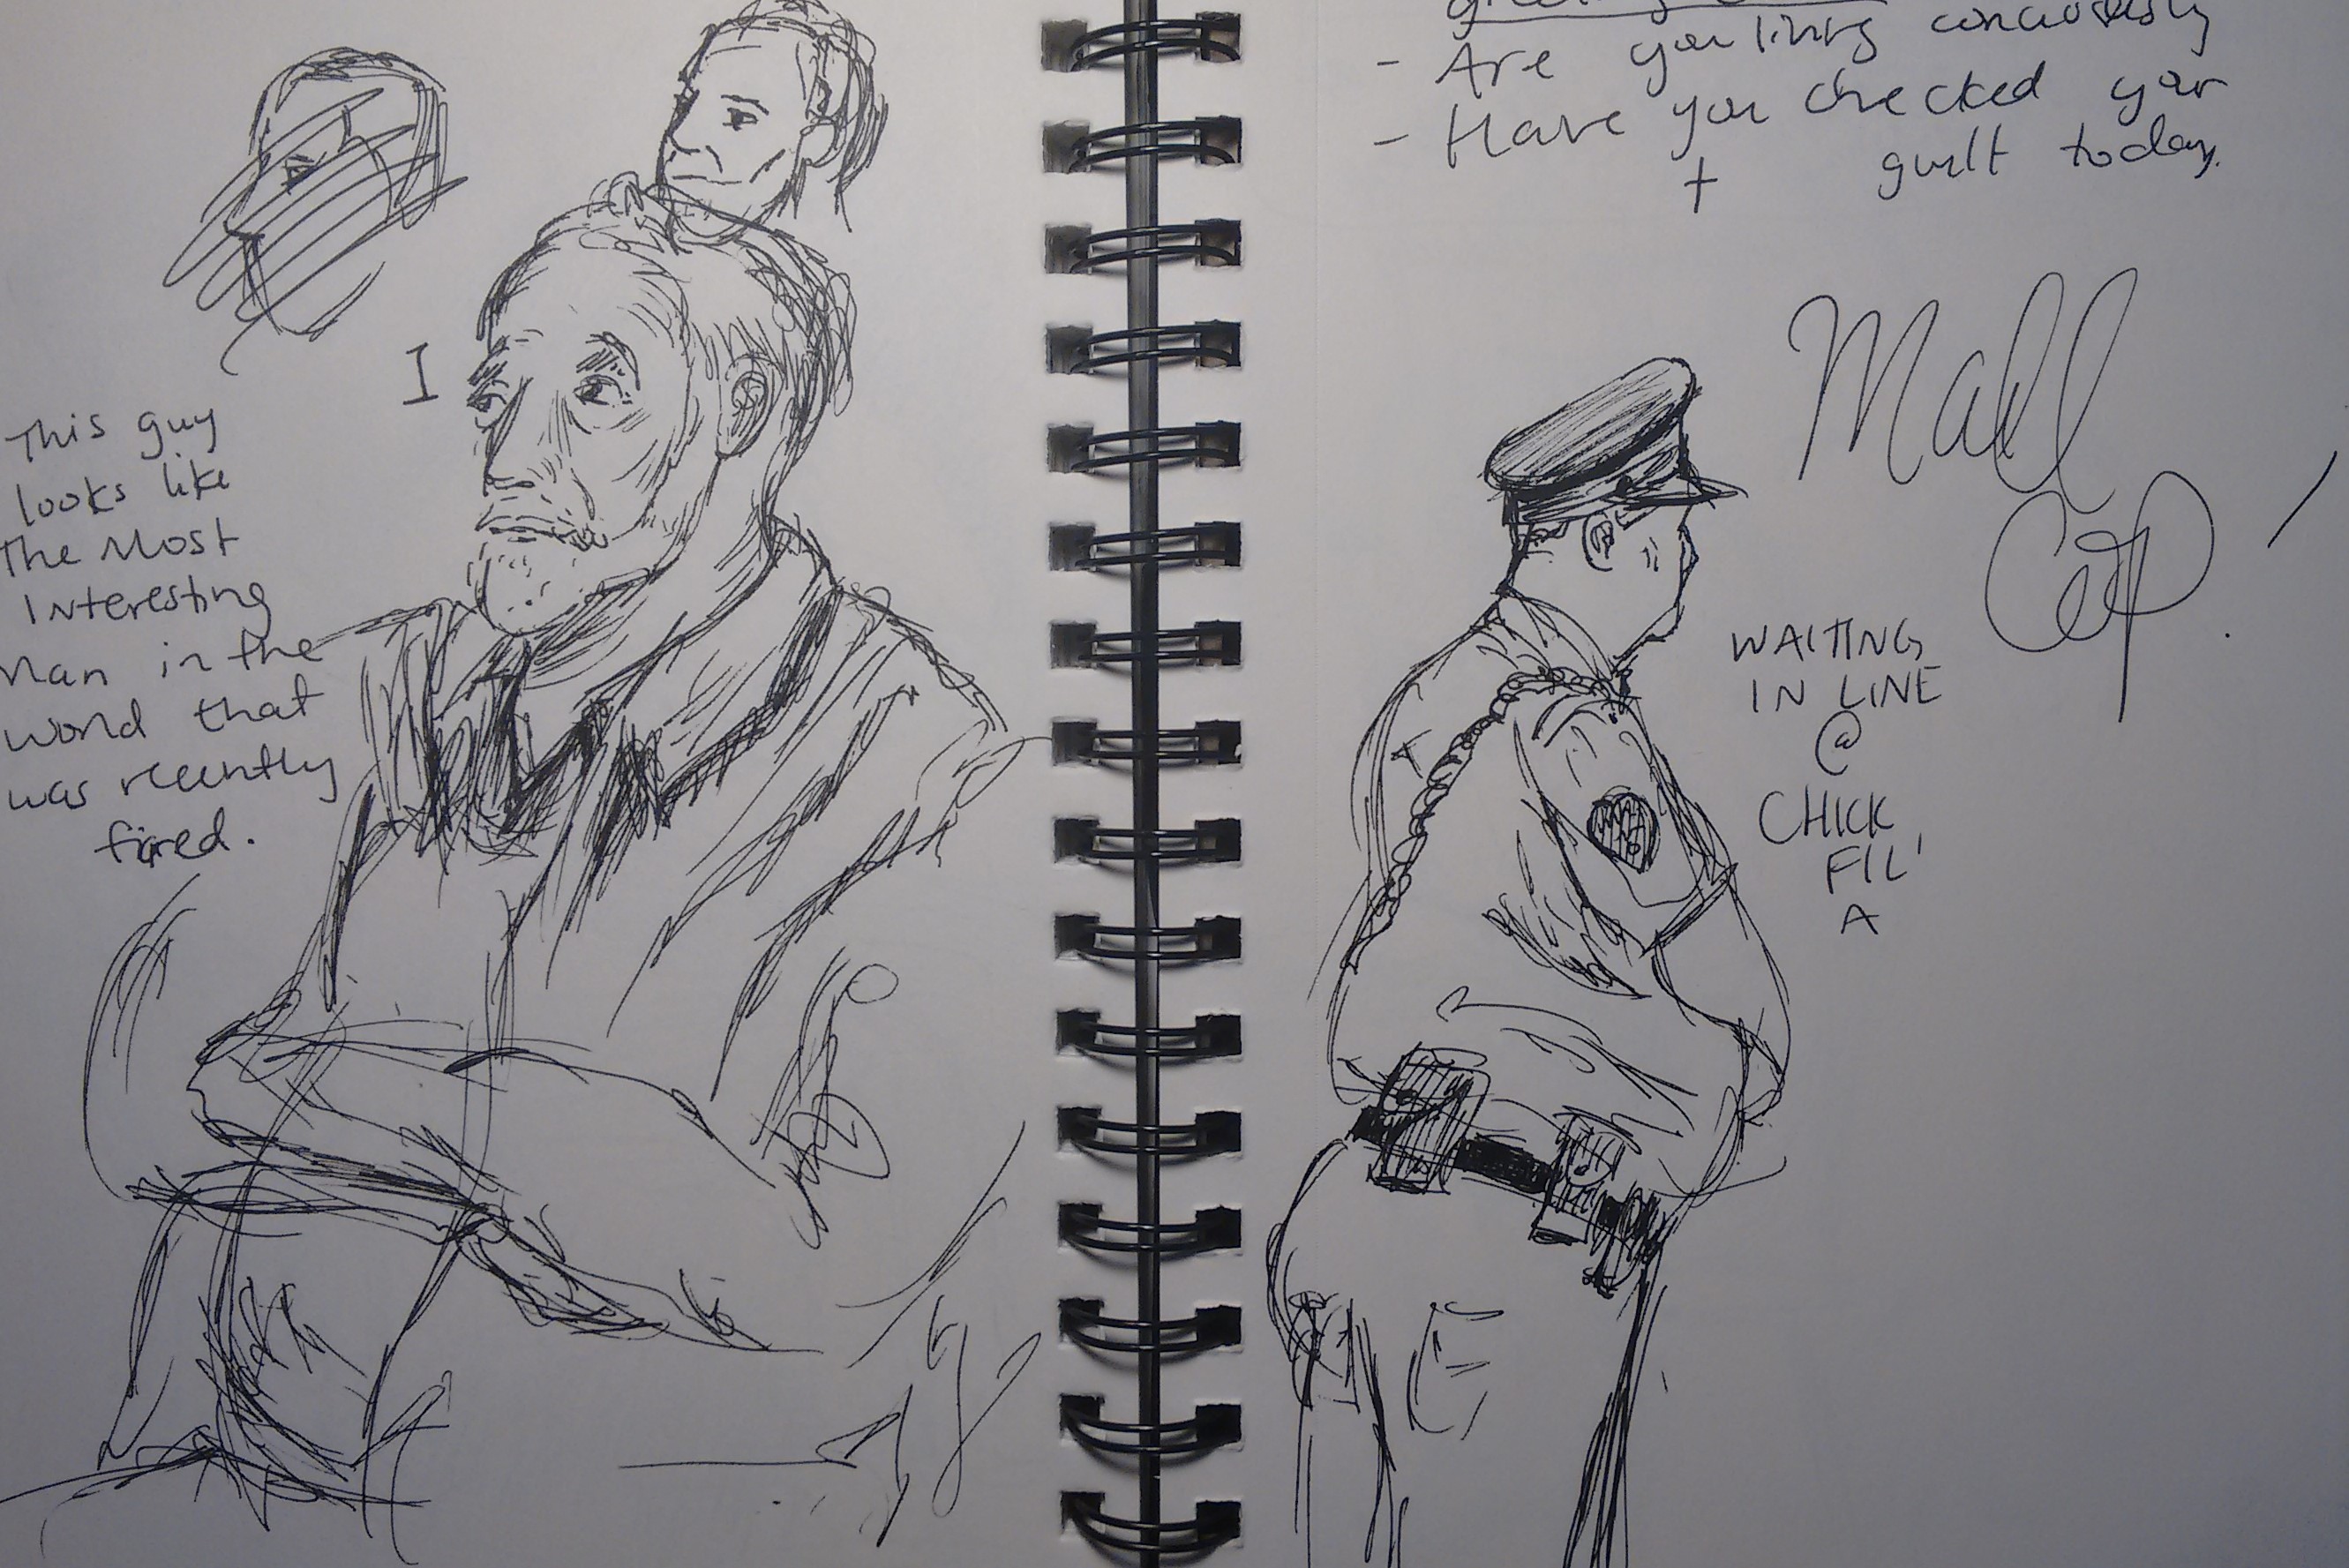 I
This guy
looks like
the Most
Interesting
Man in the
world that
was recently
fired.
- Are you living conciously
- Have you checked your
guilt today.
Mall
Cop!
WAITING
IN LINE
@
CHICK
FIL'
A